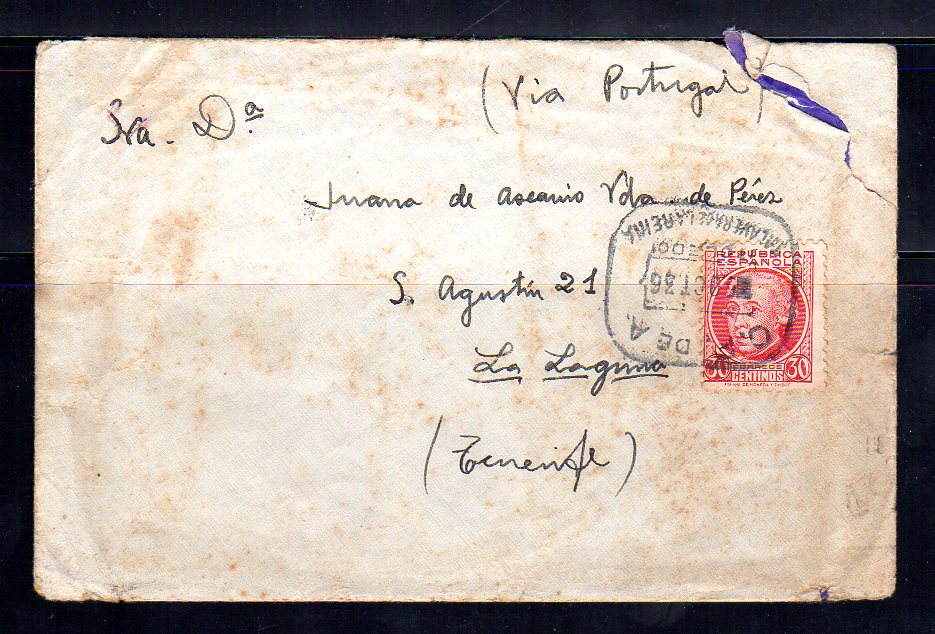 (Via Portugal)
Sra. D.ª
Juana de Ascanio Vda de Pérez
S. Agustín 21
La Laguna
(Tenerife)
TALAVERA DE LA REINA
OCT.36
DE A.
REPUBLICA
ESPAÑOLA
30 CENTIMOS 30